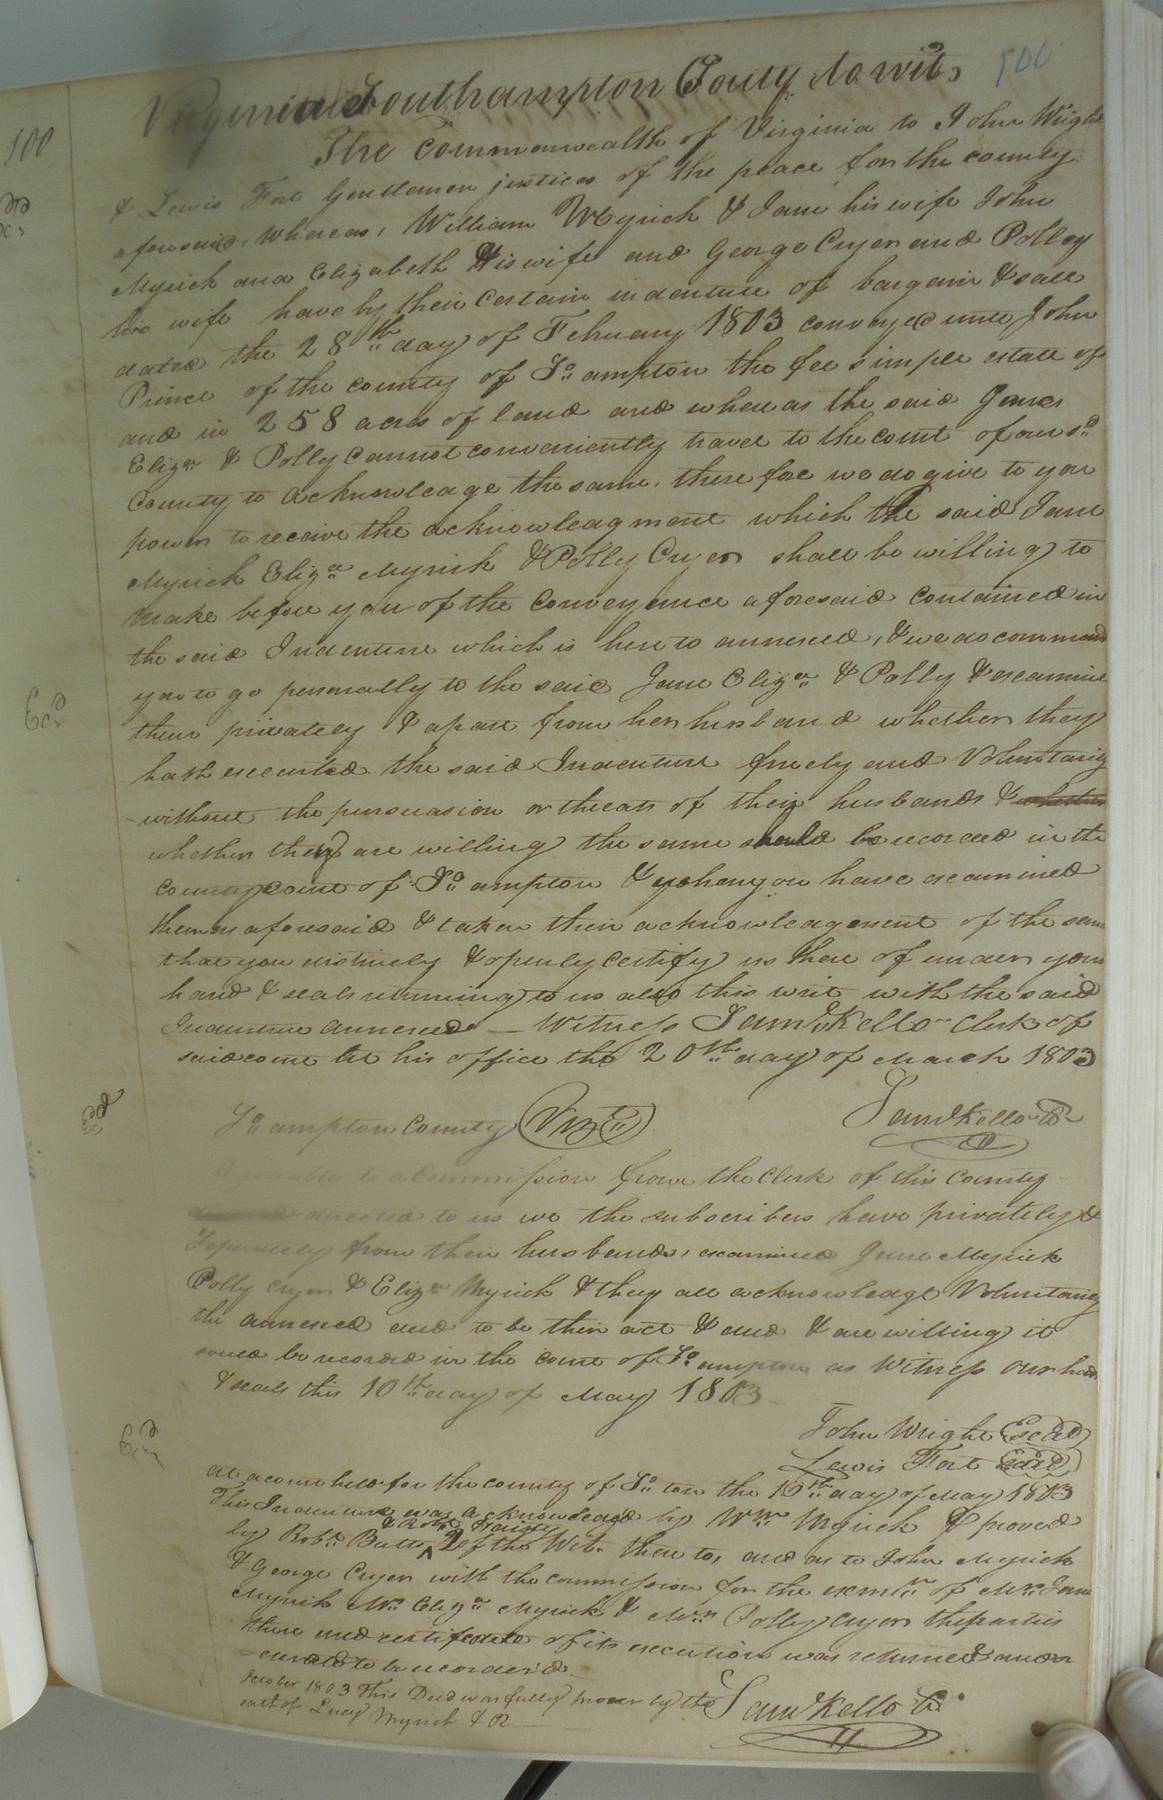 100
Virginia Southampton Couty to wit,
The Commonwealth of Virginia to John Wright
& Lewis Fort Gentlemen justices of the peace for the county
aforesaid, Whereas, William Myrick & Jane his wife John
Myrick and Elizabeth His wife and George Cryer and Polley
his wife have by their Certain indenture of bargain & sale
dated the 28th day of February 1803 conveyed unto John
Prince of the county of So:ampton the fee simple estate of
and in 258 acres of land and whereas the said Janes
Eliza: & Polly Cannot conveniently travel to the court of our sd
County to acknowledge the same, therefore we do give to you
power to receive the acknowledgment which the said Jane
Myrick Eliza: Myrick & Polly Cryer shall be willing to
make before you of the Conveyance aforesaid contained in
the said Indenture which is here to annexed, & we do command
you to go personally to the said Jane Eliza: & Polly & examine
them privately & apart from her husband whether they
hath executed the said Indenture freely and Voluntarily
without the persuasion or threats of their husbands & whether
whether they are willing the same should be recorded in the
county court of So:ampton & when you have examined
them as aforesaid & taken their acknowledgement of the same
that you distinctly & openly certify us there of under your
hand & seals returning to us also this writ with the said
Indenture annexed — Witness Saml Kello Clerk of
said court at his office the 20th day of March 1803
Saml Kello Cl
So:ampton County
to a Commission from the Clerk of this County
directed to us we the subscribers have privately &
Seperately from their husbands, examined Jane Myrick
Polly Cryer & Eliza Myrick & they all acknowledge Voluntarily
the annexed deed to be their act & deed & are willing it
should be recorded in the court of So:ampton as Witness our hands
& seals this 10th day of May 1803
John Wright Seal
Lewis Fort Seal
At a court held for the county of So:ton the 10th day of May 1803
This Indenture was acknowledged by Wm Myrick & proved
by Robt Butts 2 of the Wits. there to, and as to John Myrick
& George Cryer with the commission for the exmn of Mrs Jane
Myrick Mrs Eliza Myrick & Mrs Polly Cryer the parties
there and certificate of its execution was returned and
to be recorded
October 1803 This Deed was fully proven by the
oath of Lucy Myrick & OR
Saml Kello Cl.